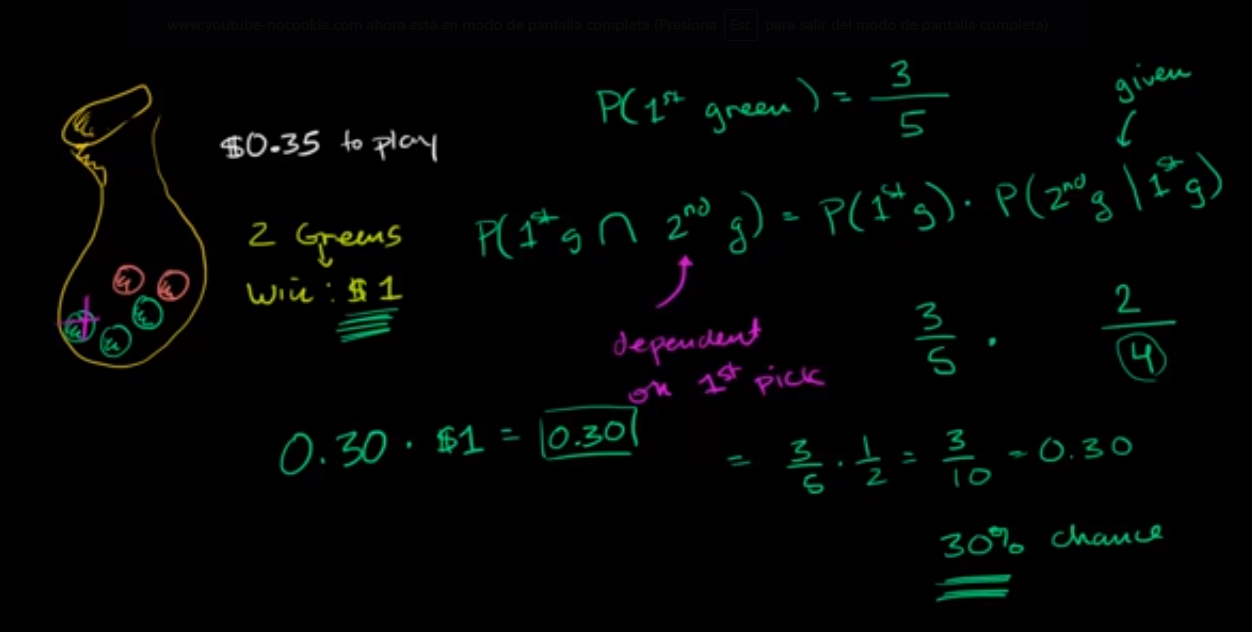 www.youtube-nocookie.com ahora está en modo de pantalla completa (Presiona Esc para salir del modo de pantalla completa)
P(1st green) = 3/5
given
$0.35 to play
P(1st g ∩ 2nd g) = P(1st g) · P(2nd g | 1st g)
2 Greens
Win: $1
dependent
on 1st pick
3/5 · 2/4
0.30 · $1 = 0.30
= 3/5 · 1/2 = 3/10 = 0.30
30% chance